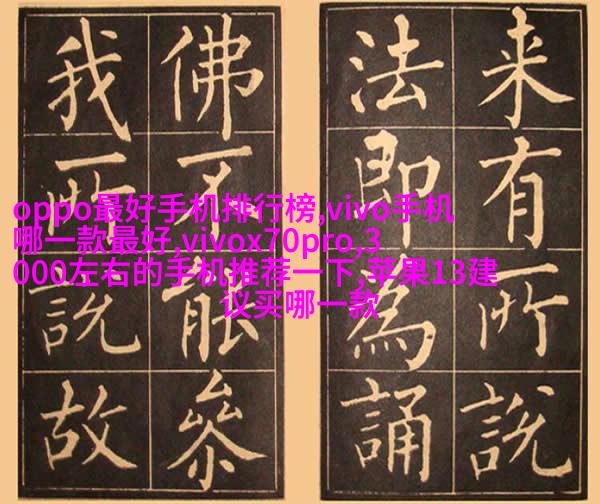 来有所說
法即為誦
佛不能參
我所說故
oppo最好手机排行榜,vivo手机
哪一款最好,vivox70pro,3
000左右的手机推荐一下,苹果13建
议买哪一款